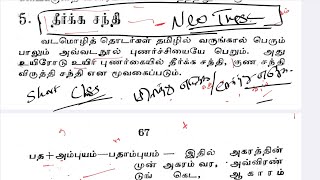 5. தீர்க்க சந்தி
Neo Tnpsc
வடமொழித் தொடர்கள் தமிழில் வருங்கால் பெரும்
பாலும் அவ்வடநூல் புணர்ச்சியையே பெறும். அது
உயிரோடு உயிர் புணர்கையில் தீர்க்க சந்தி, குண சந்தி
விருத்தி சந்தி என மூவகைப்படும்.
Short Class
67
பத+அம்புயம்—பதாம்புயம் — இதில் அகரத்தின்
முன் அகரம் வர, அவ்விரண்
டுங் கெட, ஆகாரம்